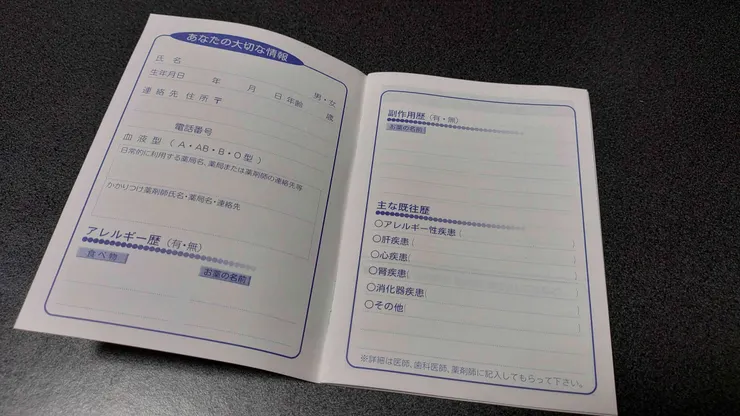 あなたの大切な情報
氏 名
生年月日 年 月 日 年齢 歳 男・女
連絡先 住所 〒
電話番号
血液型 ( A・AB・B・O 型 )
日常的に利用する薬局名、薬局または薬剤師の連絡先等
かかりつけ薬剤師氏名・薬局名・連絡先
アレルギー歴 (有・無)
食べ物
お薬の名前
副作用歴 (有・無)
お薬の名前
主な既往歴
○アレルギー性疾患( )
○肝疾患( )
○心疾患( )
○腎疾患( )
○消化器疾患( )
○その他( )
※詳細は医師、歯科医師、薬剤師に記入してもらって下さい。